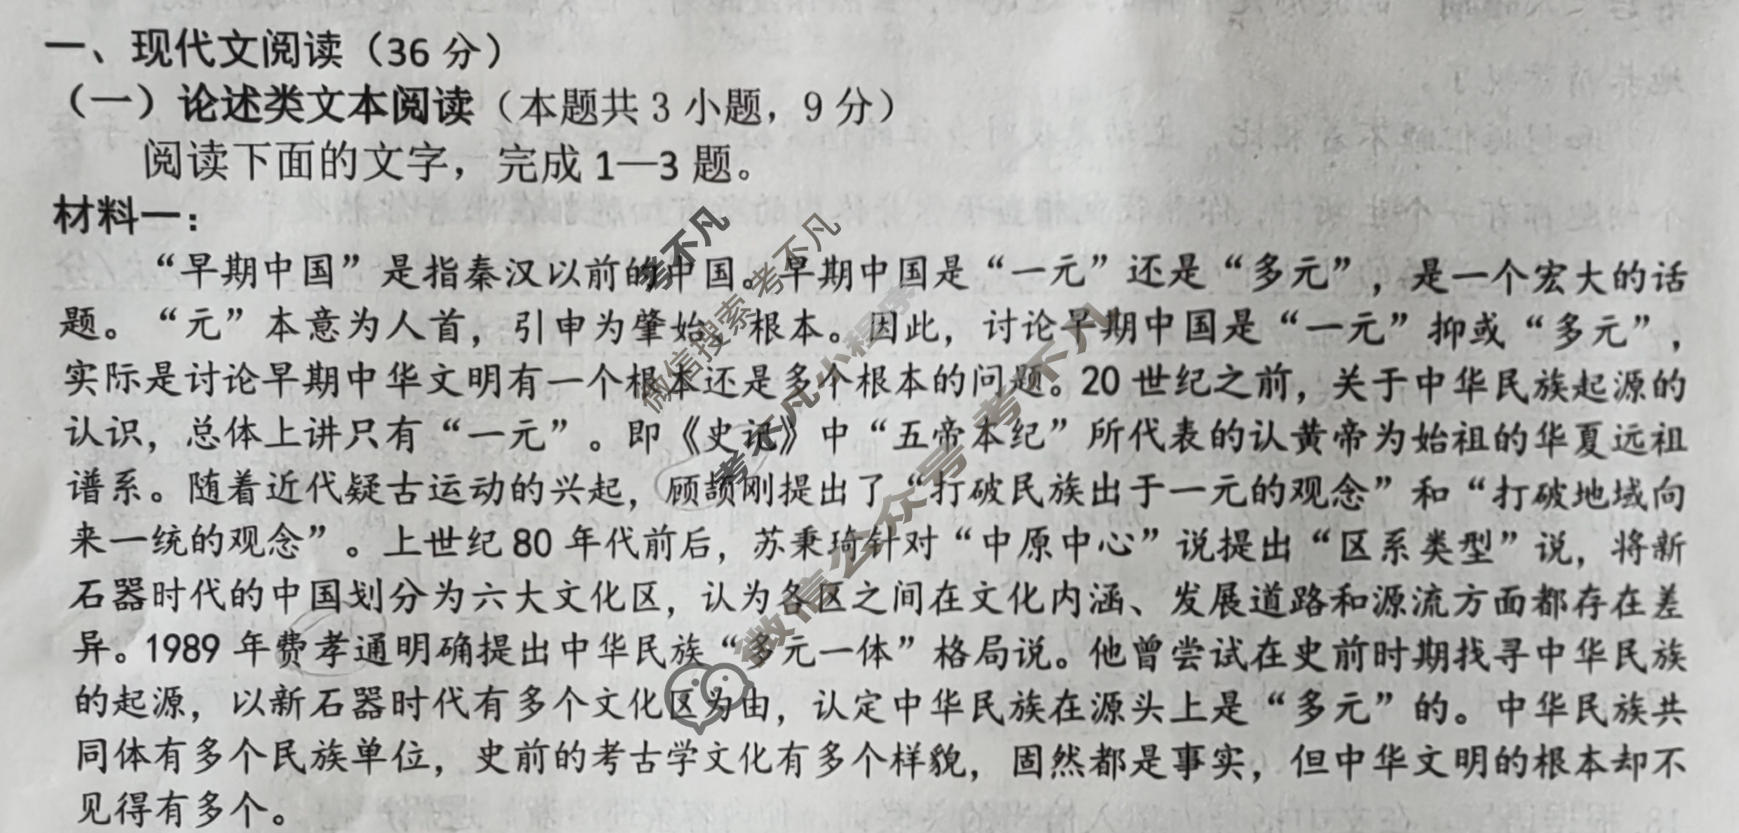 一、现代文阅读（36 分）
（一）论述类文本阅读（本题共 3 小题，9 分）
阅读下面的文字，完成 1—3 题。
材料一：
“早期中国”是指秦汉以前的中国。早期中国是“一元”还是“多元”，是一个宏大的话
题。“元”本意为人首，引申为肇始、根本。因此，讨论早期中国是“一元”抑或“多元”，
实际是讨论早期中华文明有一个根本还是多个根本的问题。20 世纪之前，关于中华民族起源的
认识，总体上讲只有“一元”。即《史记》中“五帝本纪”所代表的认黄帝为始祖的华夏远祖
谱系。随着近代疑古运动的兴起，顾颉刚提出了“打破民族出于一元的观念”和“打破地域向
来一统的观念”。上世纪 80 年代前后，苏秉琦针对“中原中心”说提出“区系类型”说，将新
石器时代的中国划分为六大文化区，认为各区之间在文化内涵、发展道路和源流方面都存在差
异。1989 年费孝通明确提出中华民族“多元一体”格局说。他曾尝试在史前时期找寻中华民族
的起源，以新石器时代有多个文化区为由，认定中华民族在源头上是“多元”的。中华民族共
同体有多个民族单位，史前的考古学文化有多个样貌，固然都是事实，但中华文明的根本却不
见得有多个。
考不凡
微信搜索 考不凡
考不凡小程序
微信公众号 考不凡